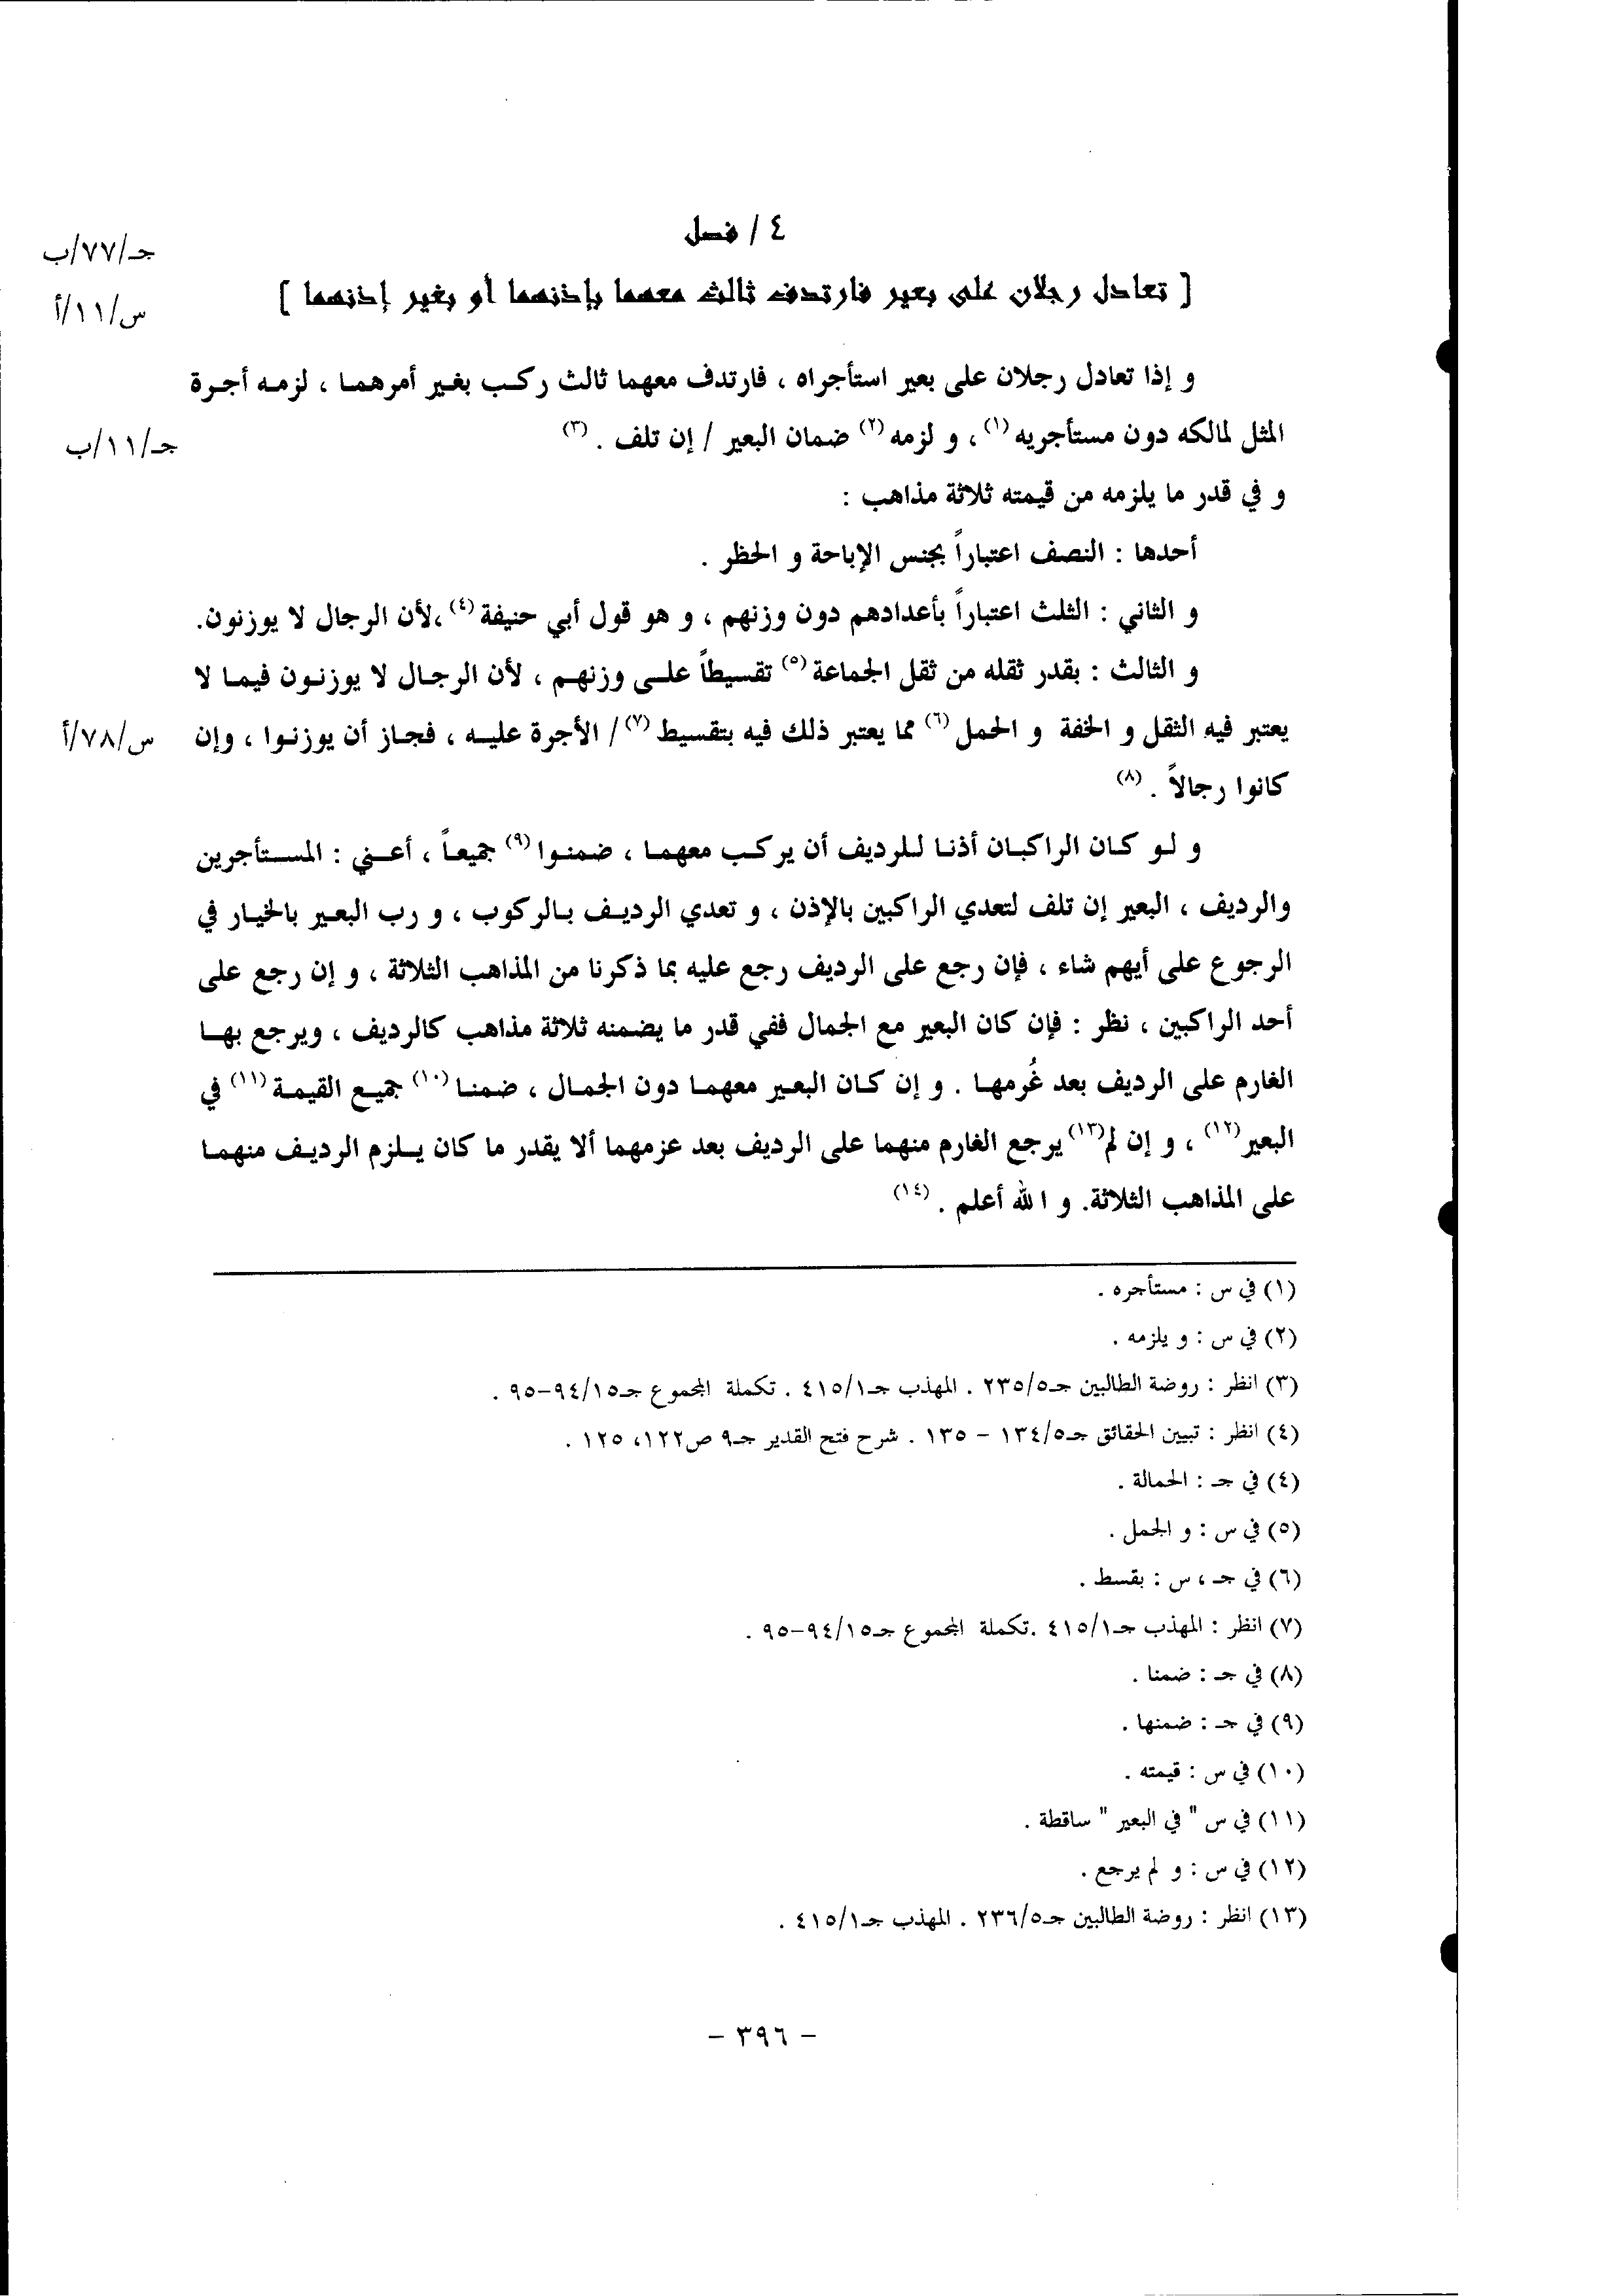 ٤ / فصل
جـ/٧٧/ب
[ تعادل رجلان على بعير فارتدف ثالث معهما بإذنهما أو بغير إذنهما ]
س/١١/أ
و إذا تعادل رجلان على بعير استأجراه ، فارتدف معهما ثالث ركب بغير أمرهما ، لزمه أجرة
المثل لمالكه دون مستأجريه (١) ، و لزمه (٢) ضمان البعير / إن تلف . (٣)
جـ/١١/ب
و في قدر ما يلزمه من قيمته ثلاثة مذاهب :
أحدها : النصف اعتباراً بجنس الإباحة و الحظر .
و الثاني : الثلث اعتباراً بأعدادهم دون وزنهم ، و هو قول أبي حنيفة (٤) ،لأن الرجال لا يوزنون.
و الثالث : بقدر ثقله من ثقل الجماعة (٥) تقسيطاً على وزنهم ، لأن الرجال لا يوزنون فيما لا
يعتبر فيه الثقل و الخفة و الحمل (٦) مما يعتبر ذلك فيه بتقسيط (٧) / الأجرة عليه ، فجاز أن يوزنوا ، وإن
س/٧٨/أ
كانوا رجالاً . (٨)
و لو كان الراكبان أذنا للرديف أن يركب معهما ، ضمنوا (٩) جميعاً ، أعني : المستأجرين
والرديف ، البعير إن تلف لتعدي الراكبين بالإذن ، و تعدي الرديف بالركوب ، و رب البعير بالخيار في
الرجوع على أيهم شاء ، فإن رجع على الرديف رجع عليه بما ذكرنا من المذاهب الثلاثة ، و إن رجع على
أحد الراكبين ، نظر : فإن كان البعير مع الجمال ففي قدر ما يضمنه ثلاثة مذاهب كالرديف ، ويرجع بها
الغارم على الرديف بعد غُرمها . و إن كان البعير معهما دون الجمال ، ضمنا (١٠) جميع القيمة (١١) في
البعير (١٢) ، و إن لم (١٣) يرجع الغارم منهما على الرديف بعد عزمهما ألا يقدر ما كان يلزم الرديف منهما
على المذاهب الثلاثة. و الله أعلم . (١٤)
(١) في س : مستأجره .
(٢) في س : و يلزمه .
(٣) انظر : روضة الطالبين جـ٢٣٥/٥ . المهذب جـ٤١٥/١ . تكملة المجموع جـ٩٤/١٥-٩٥ .
(٤) انظر : تبيين الحقائق جـ١٣٤/٥ – ١٣٥ . شرح فتح القدير جـ٩ ص١٢٢، ١٢٥ .
(٤) في جـ : الحمالة .
(٥) في س : و الجمل .
(٦) في جـ ، س : بقسط .
(٧) انظر : المهذب جـ٤١٥/١ .تكملة المجموع جـ٩٤/١٥-٩٥ .
(٨) في جـ : ضمنا .
(٩) في جـ : ضمنها .
(١٠) في س : قيمته .
(١١) في س " في البعير " ساقطة .
(١٢) في س : و لم يرجع .
(١٣) انظر : روضة الطالبين جـ٢٣٦/٥ . المهذب جـ٤١٥/١ .
– ٣٩٦ –